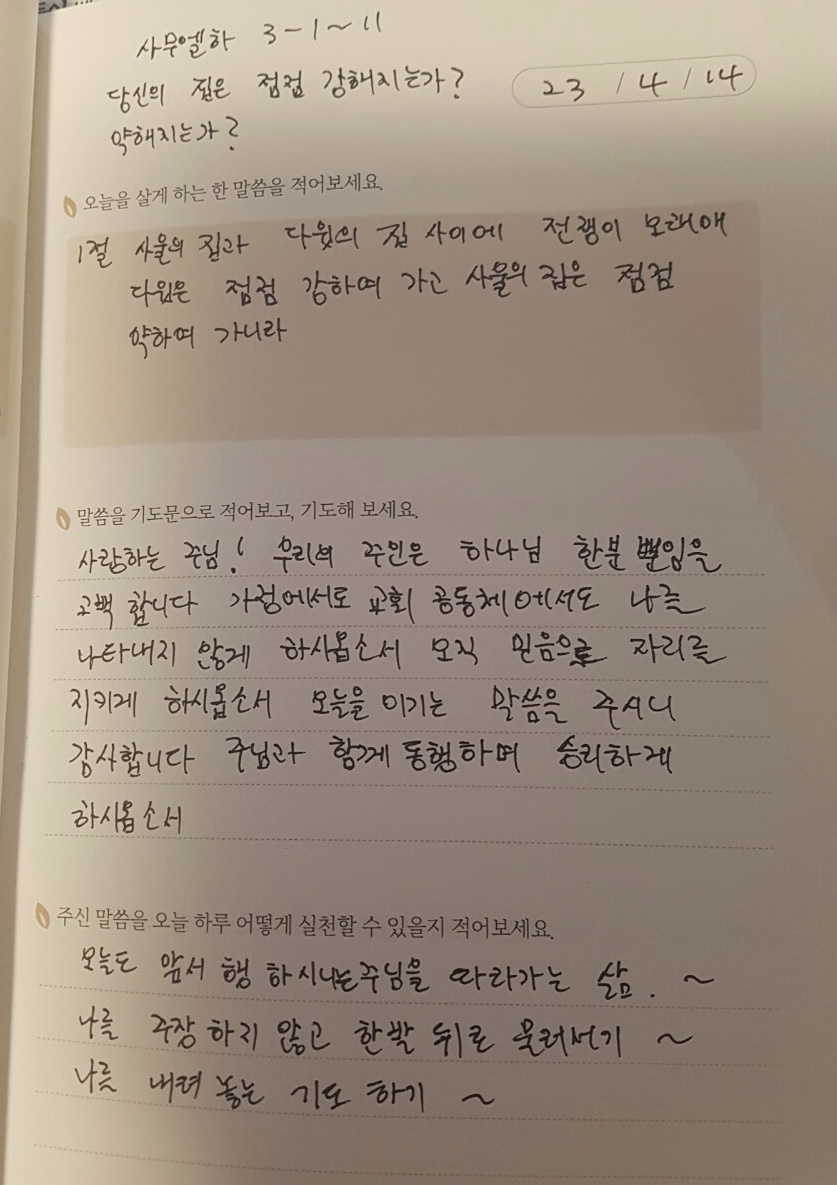 사무엘하 3-1~11
당신의 집은 점점 강해지는가?
23 / 4 / 14
약해지는가?
오늘을 살게 하는 한 말씀을 적어보세요.
1절 사울의 집과 다윗의 집 사이에 전쟁이 오래매
다윗은 점점 강하여 가고 사울의 집은 점점
약하여 가니라
말씀을 기도문으로 적어보고, 기도해 보세요.
사랑하는 주님! 우리의 주인은 하나님 한분 뿐임을
고백 합니다 가정에서도 교회 공동체에서도 나를
나타내지 않게 하시옵소서 오직 믿음으로 자리를
지키게 하시옵소서 오늘을 이기는 말씀을 주시니
감사합니다 주님과 함께 동행하며 승리하게
하시옵소서
주신 말씀을 오늘 하루 어떻게 실천할 수 있을지 적어보세요.
오늘도 앞서 행 하시는 주님을 따라가는 삶. ~
나를 주장 하지 않고 한발 뒤로 물러서기 ~
나를 내려 놓는 기도 하기 ~